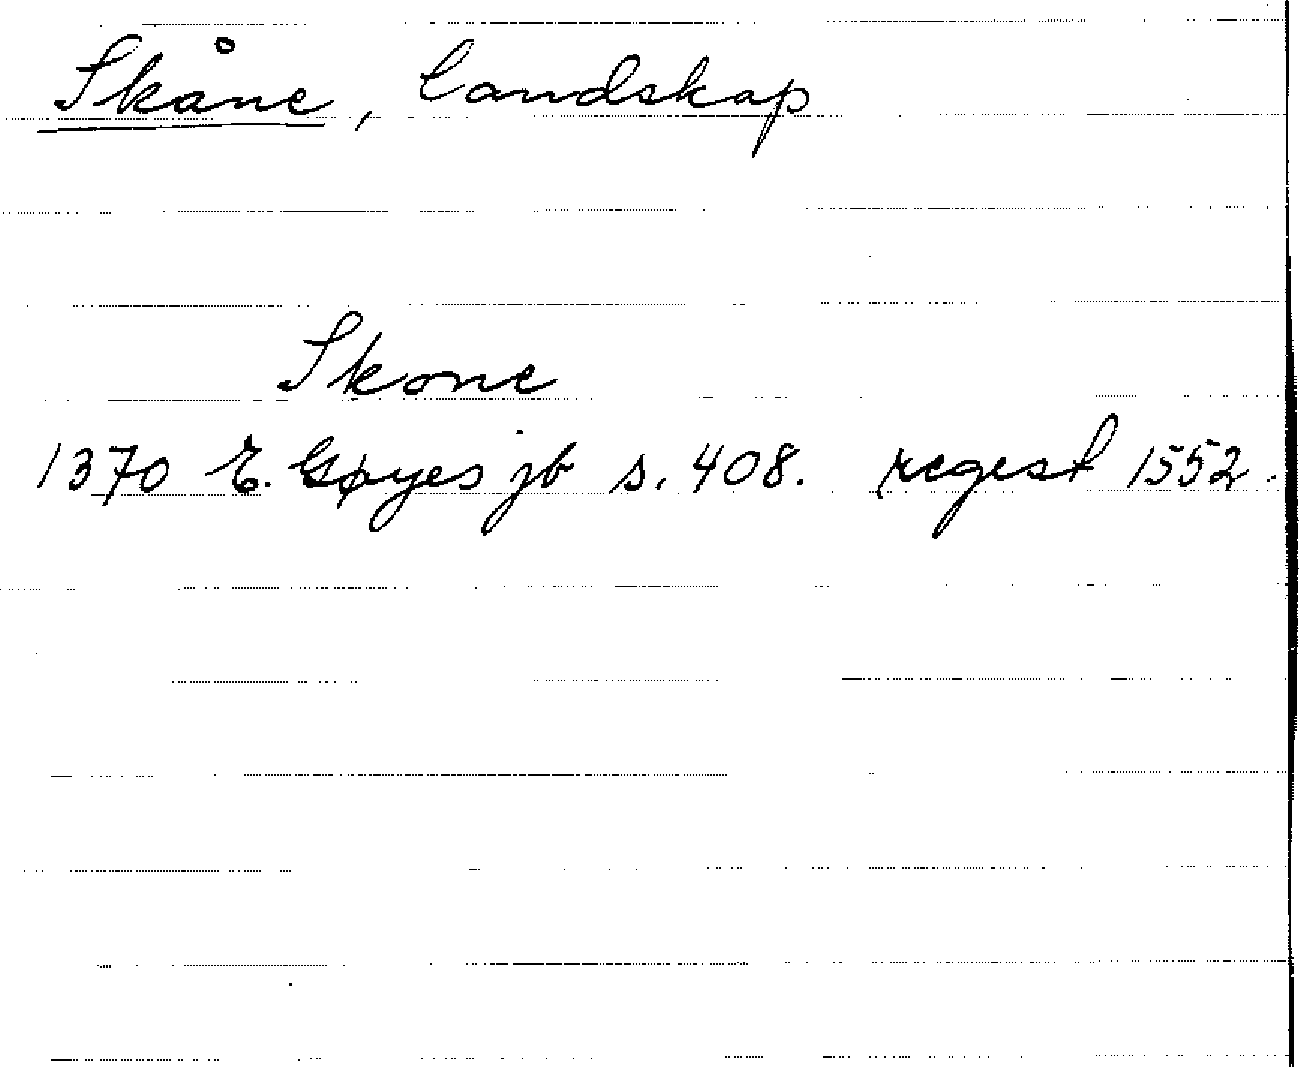 Skåne, landskap
Skone
1370 E. Gøyes jb s. 408. regest 1552.